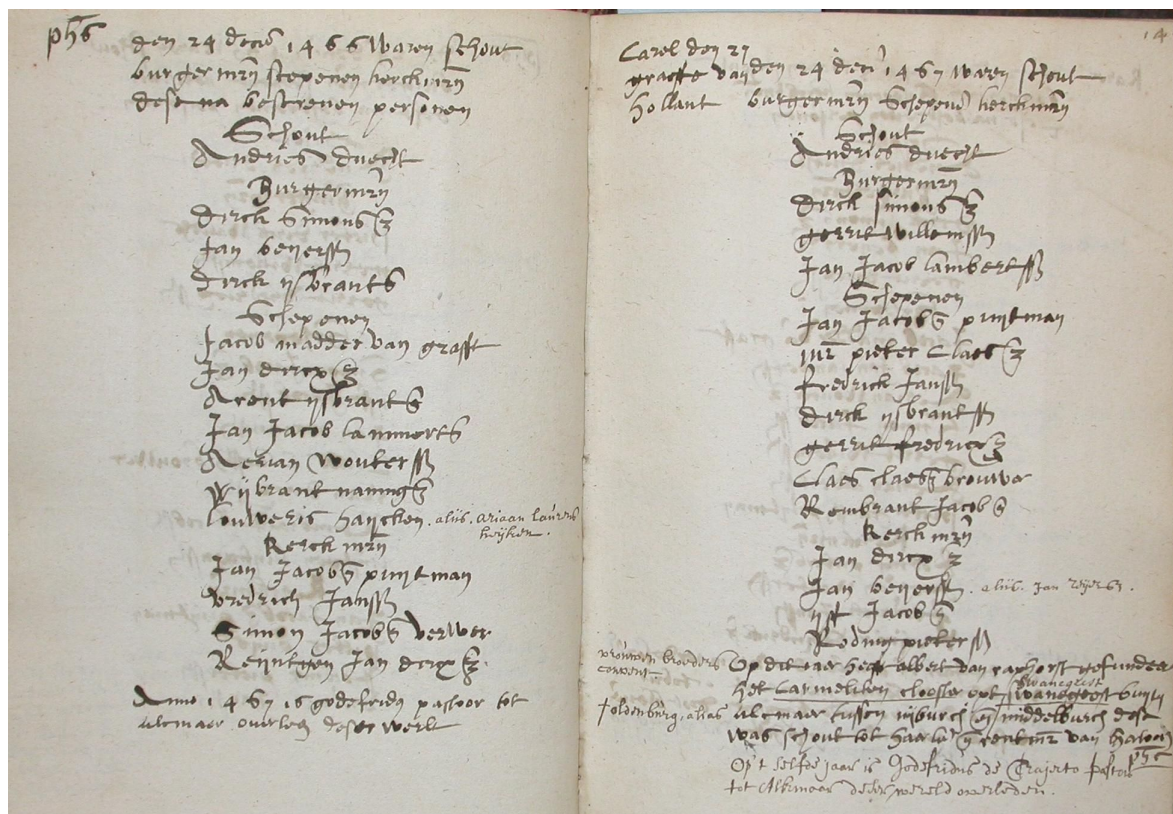 phs
den 24 decem 1466 waren schout
burgermrn scepenen kerckmrn
dese na bescreven personen
Schout
Andries dvecht
Burgermrn
Dirck Simonsz
Jan beyerssn
Dirck ysbrants
Schepenen
Jacob madder van grafft
Jan dircxsz
Arent ysbrants
Jan Jacob lammerts
Aerian Wouterssn
Wijbrant nanningsz
louweris haijcken . aliis. ariaan laurens
heijken.
Kerckmrn
Jan Jacobsz puijtman
vredrich Janssn
Simon Jacobsz verwer
Reijntgen Jan dircxsz
Anno 1467 is godefridus pastoor tot
alcmaer overleden deser werlt
14
Carel den 27
grave van
hollant
den 24 decem 1467 waren schout
burgermrn Schepenen kerckmrn
Schout
Andries dvecht
Burgermrn
Dirck simonsz
gerrit Willemssn
Jan Jacob lambertssn
Schepenen
Jan Jacobsz puijtman
mr pieter Claesz
fredrick Janssn
dirck ysbrantssn
gerrit fredricxsz
Claes claesz brouwer
Rembrant Jacobsz
Kerckmrn
Jan dircxz
Jan beyerssn . aliis. Jan reijersz.
ijst Jacobsz
Roduig pieterssn
vrouwen broeders
convent
Op dit iaer heeft albert van raphorst gefundeert
het Carmeliten clooster opt swanegeest buyten
swanegeest
toldenburg, alias
alcmaer tussen nijburch en middelburch dese
was schout tot haarlem en rentmr van
phs
Op 't selfde jaar is Godefridus de Trajecto Pastoor
tot Alkmaar deser wereld overleden.